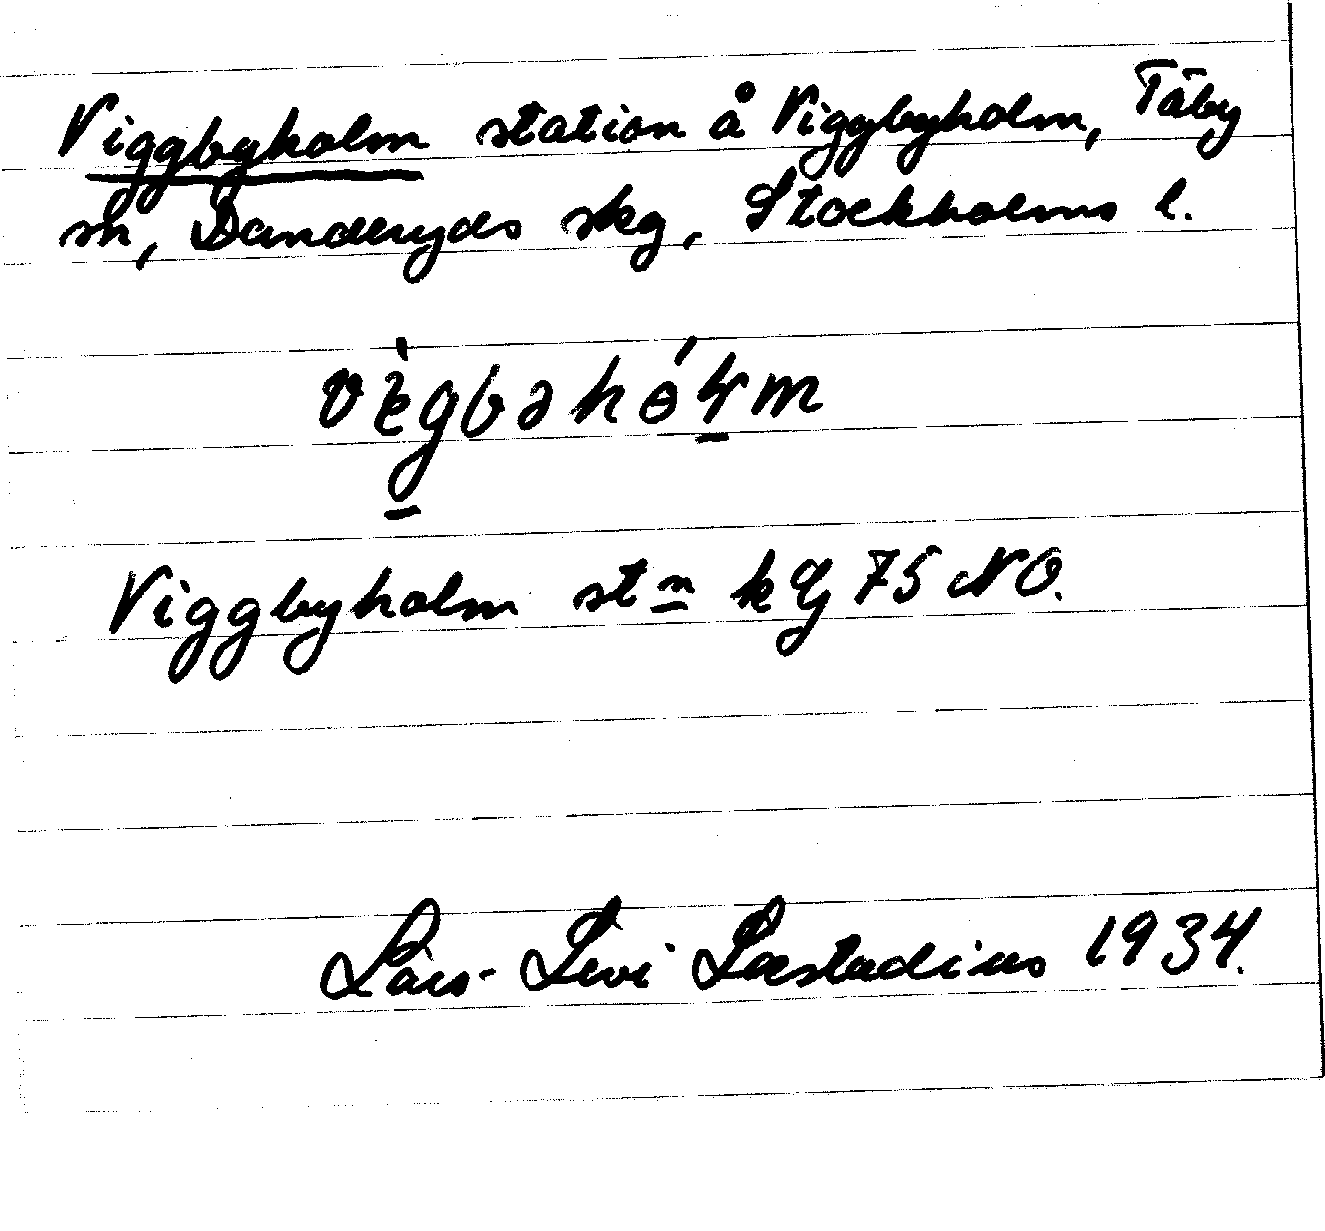 Viggbyholm station å Viggbyholm, Täby
sn, Danderyds skg, Stockholms l.
Viggbyholm stn kbl 75 NO.
Lars-Levi Læstadius 1934.